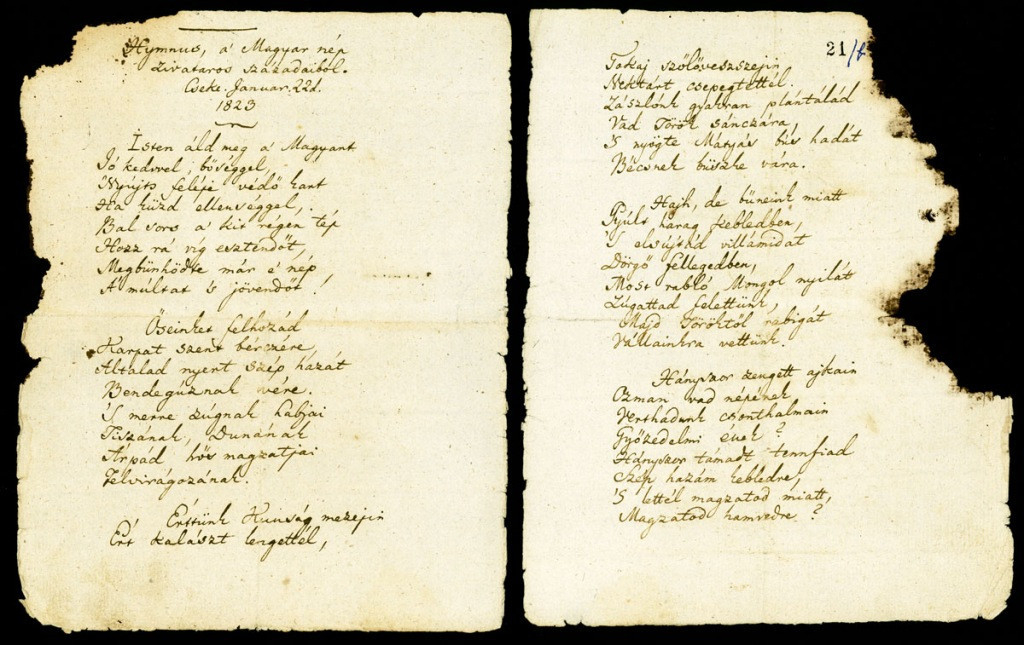 Hymnus, a' Magyar nép
zivataros századaiból.
Cseke. Januar. 22d.
1823
Isten áld meg a' Magyart
Jó kedvvel, bőséggel,
Nyújts feléje védő kart
Ha küzd ellenséggel,
Bal sors a' kit régen tép
Hozz rá víg esztendőt,
Megbűnhödte már e' nép
A' múltat 's jövendőt!
Őseinket felhozád
Kárpat szent bérczére,
Általad nyert szép hazát
Bendegúznak vére.
'S merre zúgnak habjai
Tiszának, Dunának
Árpád hős magzatjai
Felvirágozának.
Értünk Kunság mezejin
Ért kalászt lengettél,
21/b
Tokaj szőlővesszejin
Nektárt csepegtettél.
Zászlónk gyakran plántálád
Vad Török sánczára,
'S nyögte Mátyás bús hadát
Bécsnek büszke vára.
Hajh, de bűneink miatt
Gyúlt harag kebledben,
'S elsújtád villámidat
Dörgő fellegedben,
Most rabló Mongol nyilát
Zúgattad felettünk,
Majd Töröktől rabigát
Vállainkra vettünk.
Hányszor zengett ajkain
Ozman vad népének
Vert hadunk csonthalmain
Győzedelmi ének?
Hányszor támadt tennfiad
Szép hazám kebledre,
'S lettél magzatod miatt,
Magzatod hamvedre?